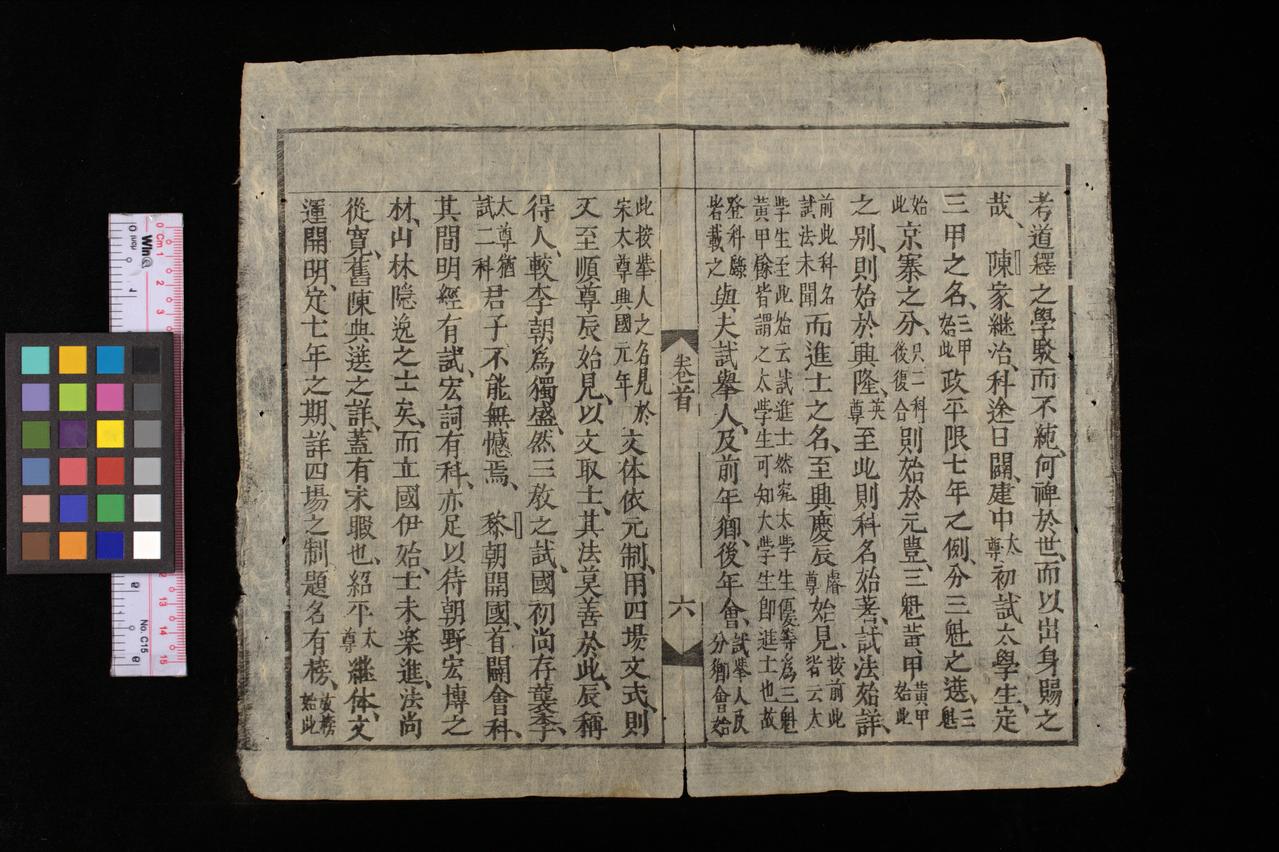 考道釋之學駁而不純、何裨於世、而以出身賜之
哉、陳家継治、科途日闢、建中太尊初試太學生、定
三甲之名、三甲始此政平限七年之例、分三魁之選、三魁
始此京寨之分、只二科後復合則始於元豊、三魁黃甲黃甲始此
之別、則始於興隆、英尊至此則科名始著、試法始詳、
前此科名試法未聞而進士之名、至興慶辰睿尊始見、按前此皆云太
學生至此始云試進士然究太学生優等為三魁黃甲餘皆謂之太学生可知大学生即進士也故
登科錄皆載之與夫試舉人、及前年鄉、後年會、試舉人及分鄉會始
此按舉人之名見於宋太尊興國元年文体依元制、用四場文式、則
又至順尊辰始見、以文取士、其法莫善於此、辰称
得人、較李朝為獨盛、然三教之試、國初尚存、蓑李
太尊猶試二科君子不能無憾焉、黎朝開國、首闢會科、
其間明經有試、宏詞有科、亦足以待朝野宏博之
材、山林隱逸之士矣、而立國伊始、士未楽進、法尚
從寬、舊陳典選之詳、蓋有未暇也、紹平太尊継体、文
運開明、定七年之期、詳四場之制、題名有榜、放榜始此
卷首
六